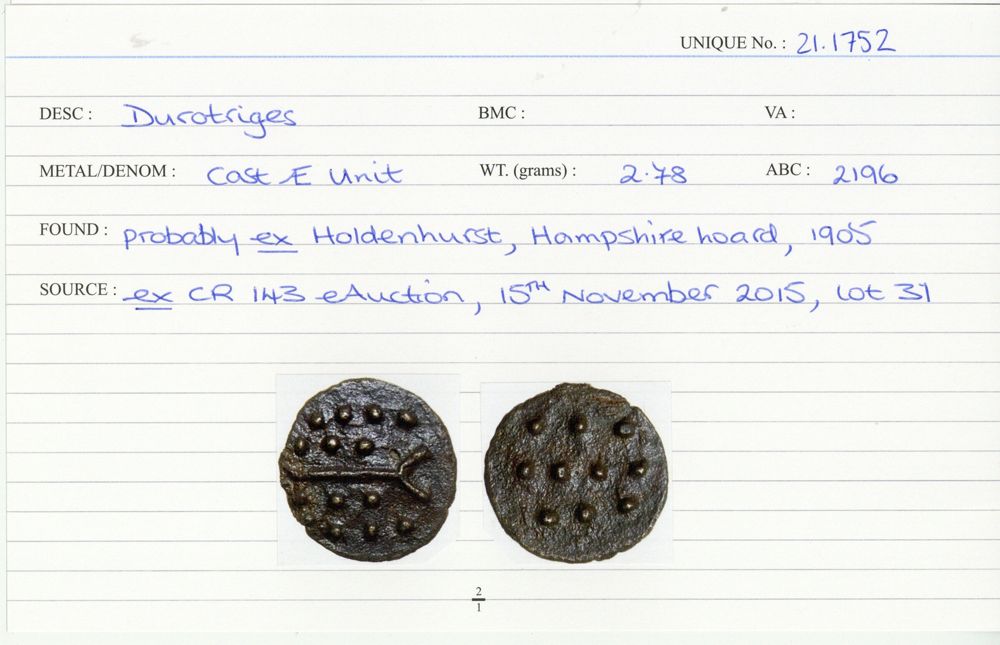 UNIQUE No. : 21.1752
DESC : Durotriges BMC : VA :
METAL/DENOM : Cast Æ Unit WT. (grams) : 2.78 ABC : 2196
FOUND : probably ex Holdenhurst, Hampshire hoard, 1905
SOURCE : ex CR 143 eAuction, 15TH November 2015, lot 31
2
1